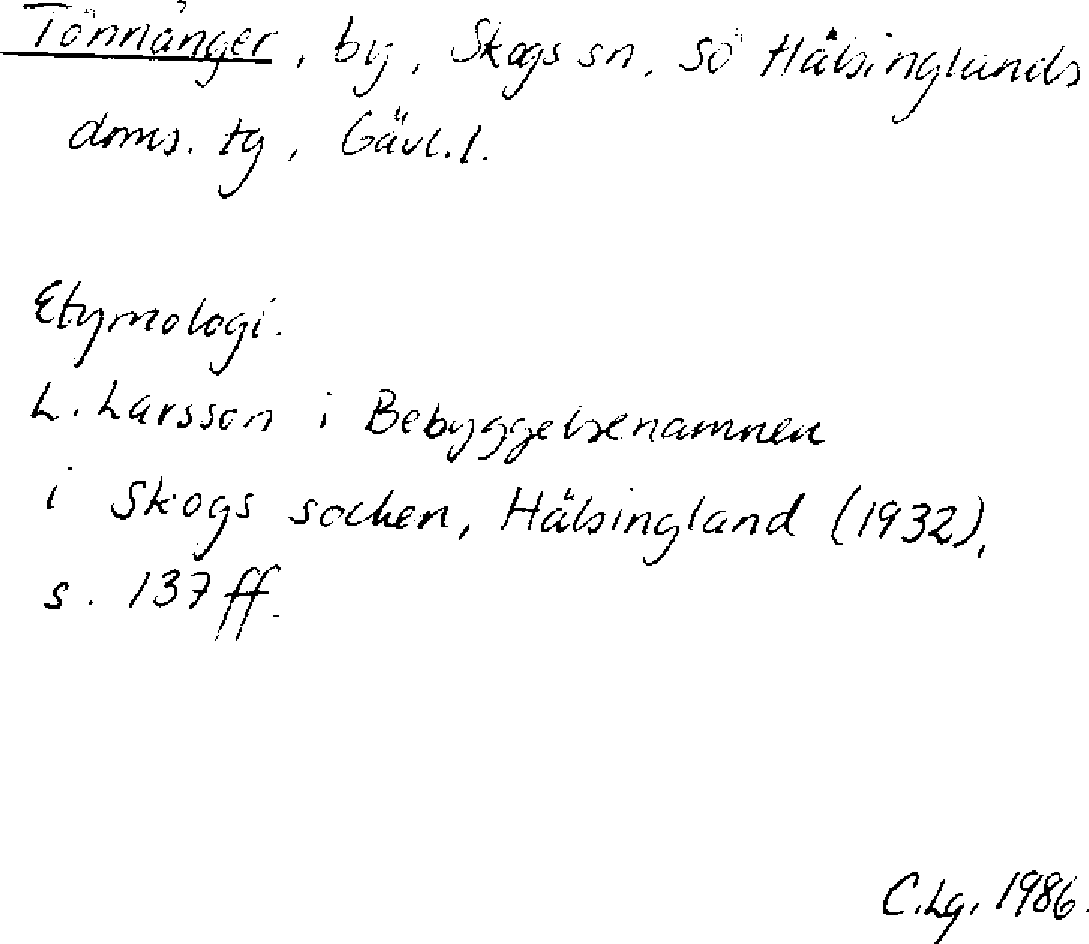 Tönnånger, by, Skogs sn, sö Hälsinglands
doms. tg, Gävl. l.
Etymologi.
L. Larsson i Bebyggelsenamnen
i Skogs socken, Hälsingland (1932),
s. 137 ff.
C.Lg. 1986.